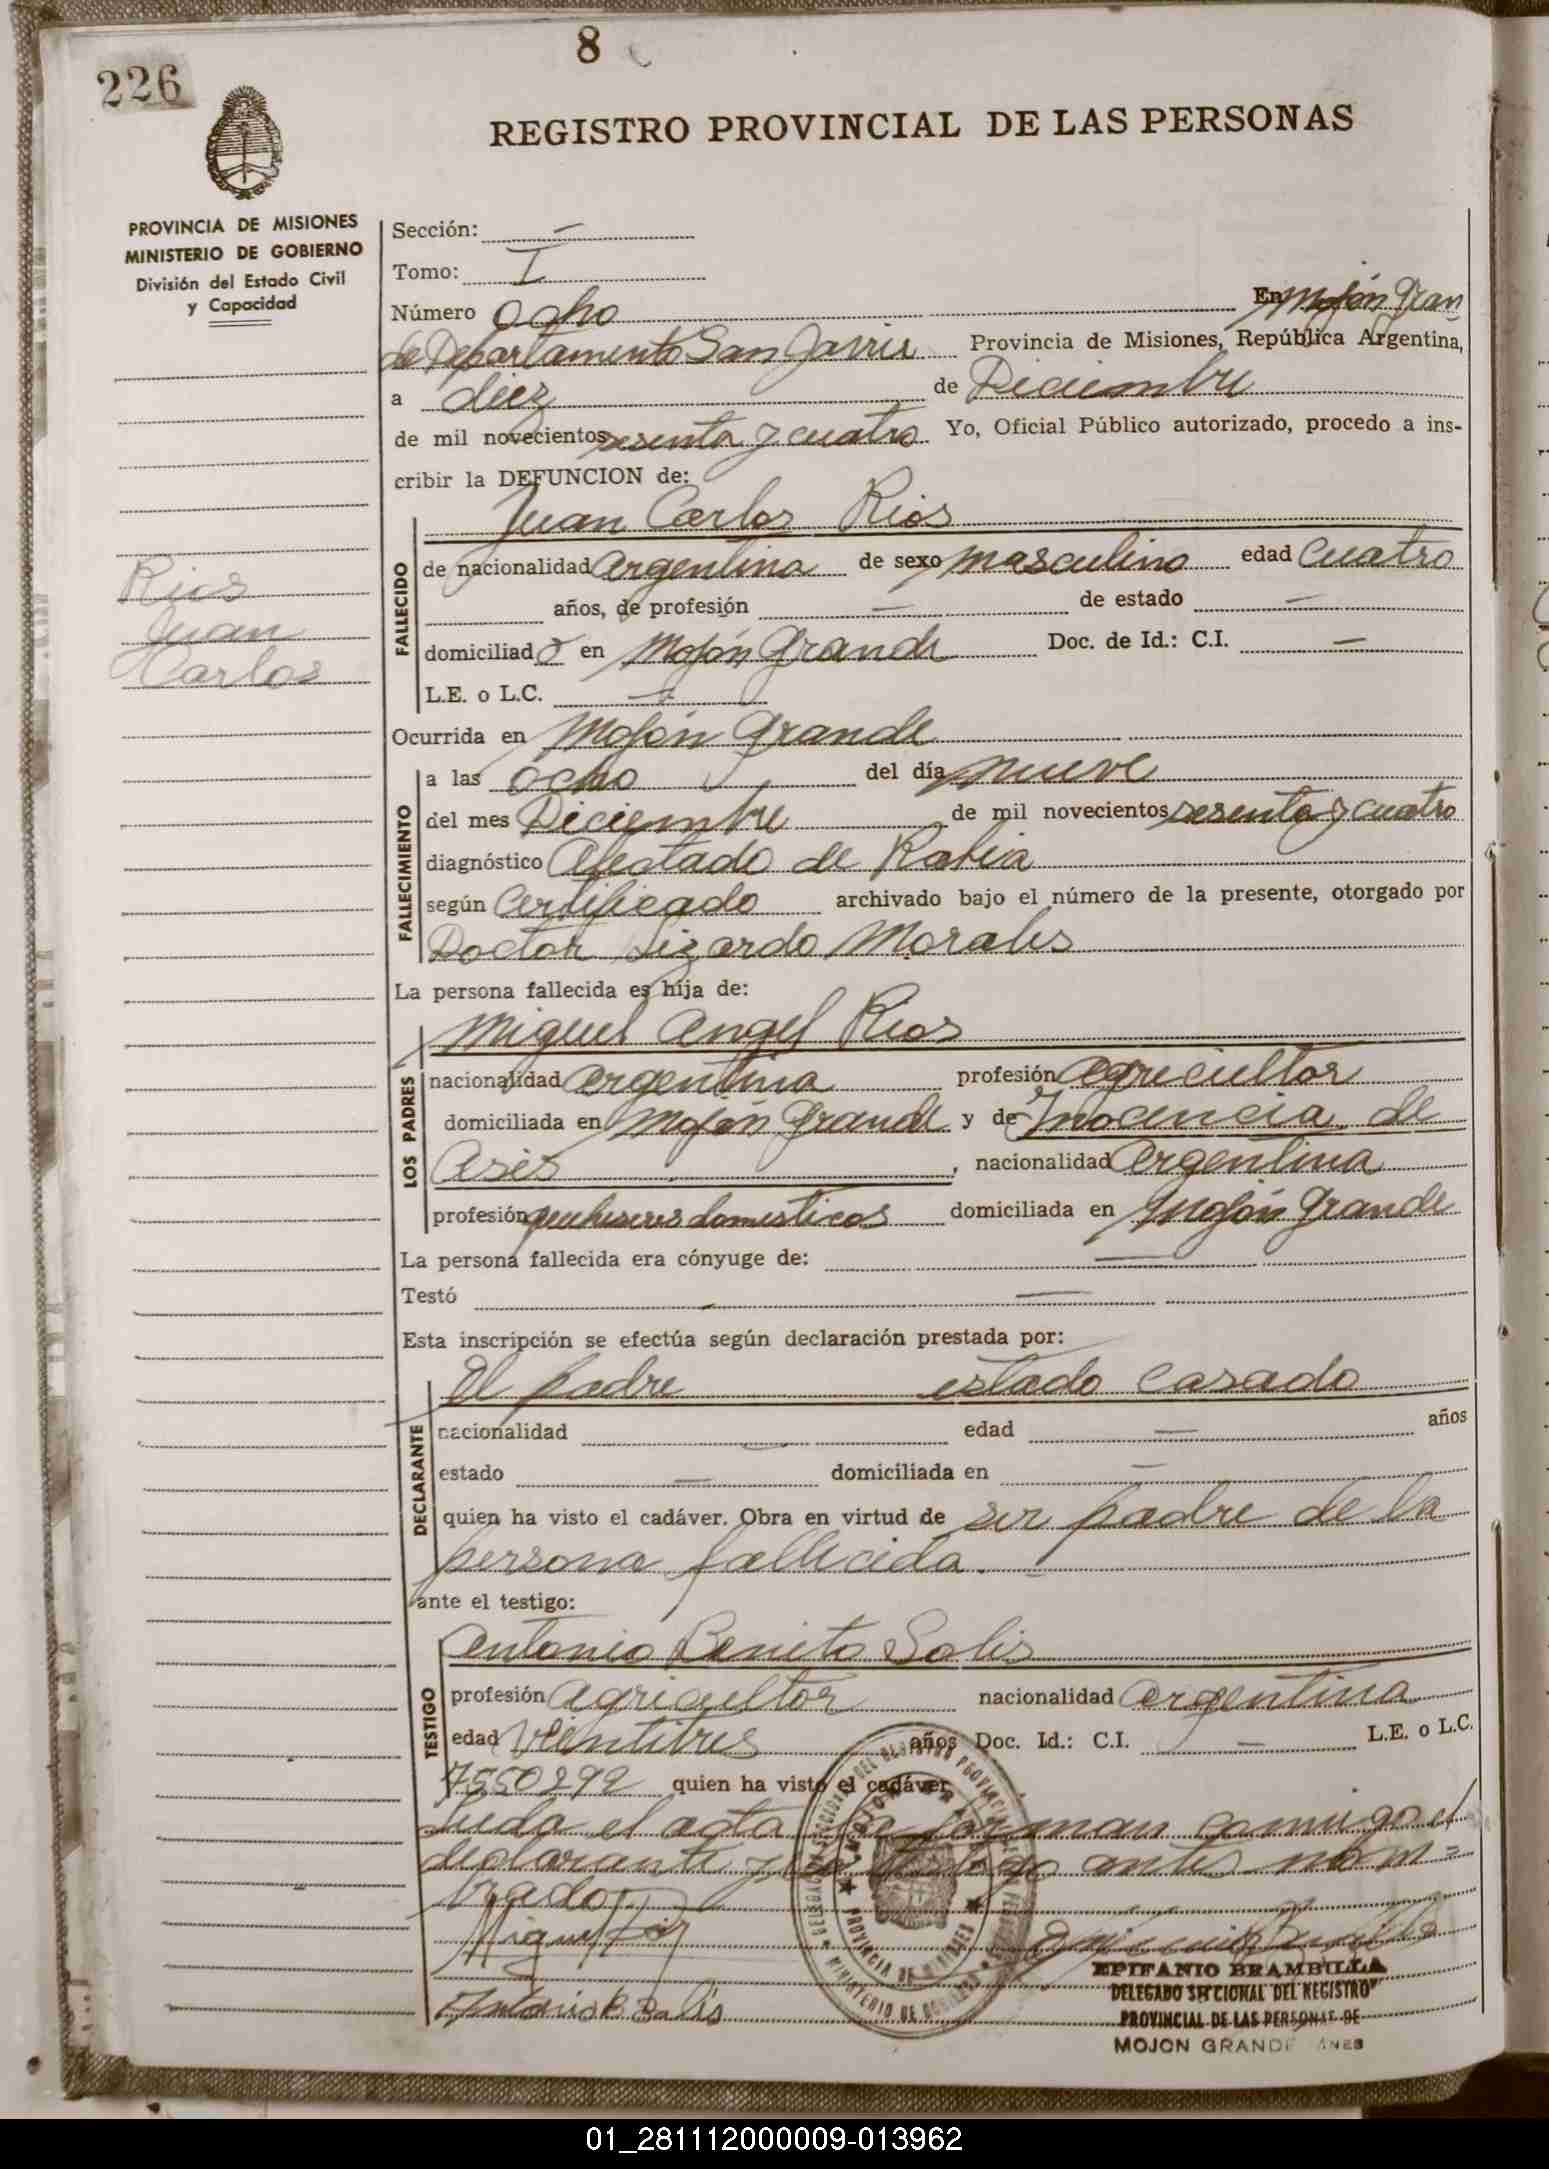 8
226
REGISTRO PROVINCIAL DE LAS PERSONAS
PROVINCIA DE MISIONES
MINISTERIO DE GOBIERNO
División del Estado Civil
y Capacidad
Rios
Juan
Carlos
Sección: —
Tomo: I
Número Ocho En Mojón Gran-
de Departamento San Javier Provincia de Misiones, República Argentina,
a diez de Diciembre
de mil novecientos sesenta y cuatro Yo, Oficial Público autorizado, procedo a ins-
cribir la DEFUNCION de:
Juan Carlos Rios
FALLECIDO
de nacionalidad argentina de sexo masculino edad cuatro
años, de profesión — de estado —
domiciliado en Mojón Grande Doc. de Id.: C.I. —
L.E. o L.C. —
Ocurrida en Mojón Grande
FALLECIMIENTO
a las ocho del día nueve
del mes Diciembre de mil novecientos sesenta y cuatro
diagnóstico afectado de Rabia
según Certificado archivado bajo el número de la presente, otorgado por
Doctor Lizardo Morales
La persona fallecida es hija de:
LOS PADRES
Miguel Angel Rios
nacionalidad argentina profesión agricultor
domiciliada en Mojón Grande y de Inocencia de
Asis, nacionalidad argentina
profesión quehaseres domesticos domiciliada en Mojón Grande
La persona fallecida era cónyuge de: —
Testó —
Esta inscripción se efectúa según declaración prestada por:
DECLARANTE
El padre estado casado
nacionalidad — edad — años
estado — domiciliada en —
quien ha visto el cadáver. Obra en virtud de ser padre de la
persona fallecida.
ante el testigo:
TESTIGO
Antonio Benito Solis
profesión agricultor nacionalidad argentina
edad Vientitres años Doc. Id.: C.I. — L.E. o L.C.
7550292 quien ha visto el cadáver
Leida el acta la forman comigo el
declarante y el testigo antes nom=
brado.
Miguel Rios
Antonio B Solis
EPIFANIO BRAMBILLA
DELEGADO SECCIONAL DEL REGISTRO
PROVINCIAL DE LAS PERSONAS DE
MOJON GRANDE
PROVINCIA DE MISIONES
01_281112000009-013962